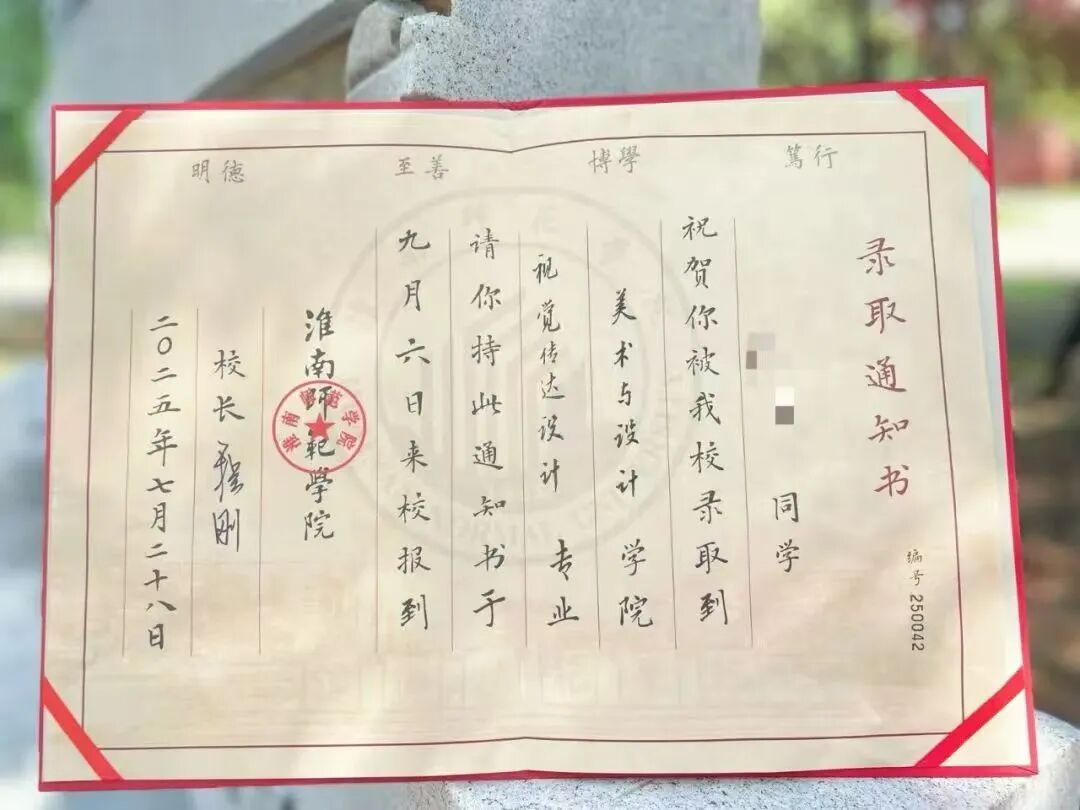 明德 至善 博學 篤行
录取通知书
编号 250042
同学
祝贺你被我校录取到
美术与设计 学院
视觉传达设计 专业
请你持此通知书于
九月六日来校报到
淮南師範學院
淮南师范学院
校长
二〇二五年七月二十八日